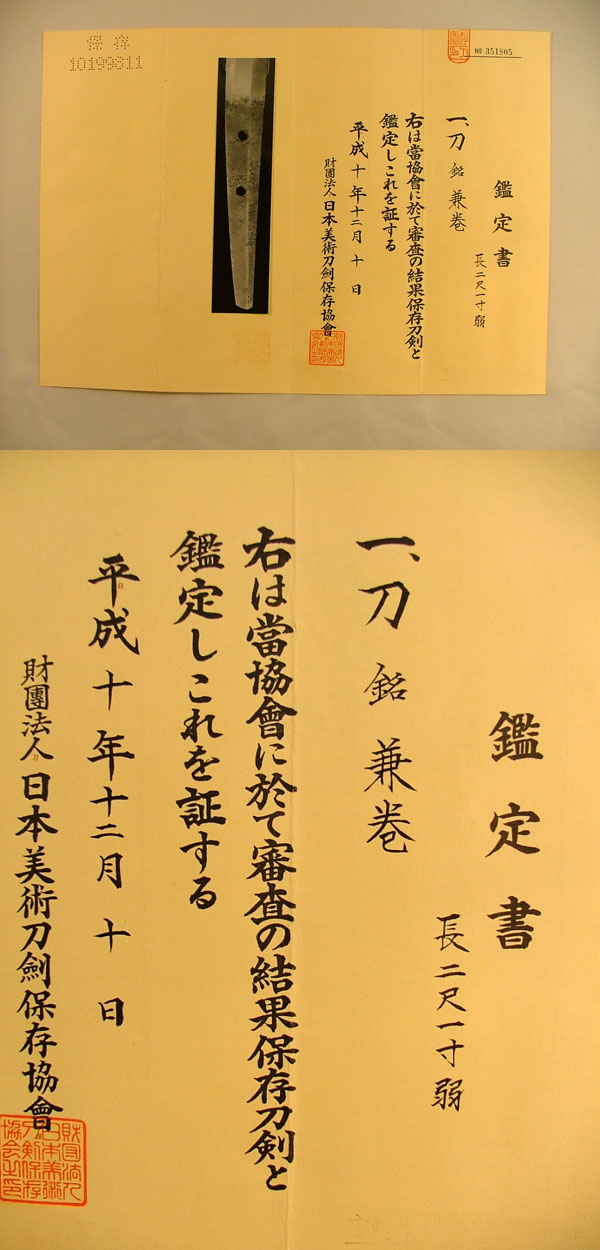 保存
10199811
№ 351805
鑑定書
一、刀 銘 兼巻
長二尺一寸弱
右は當協會に於て審査の結果保存刀剣と
鑑定しこれを証する
平成十年十二月十日
財團法人日本美術刀劍保存協會
鑑定書
一、刀 銘 兼巻
長二尺一寸弱
右は當協會に於て審査の結果保存刀剣と
鑑定しこれを証する
平成十年十二月十日
財團法人日本美術刀劍保存協會
財団法人日本美術刀剣保存協会之印